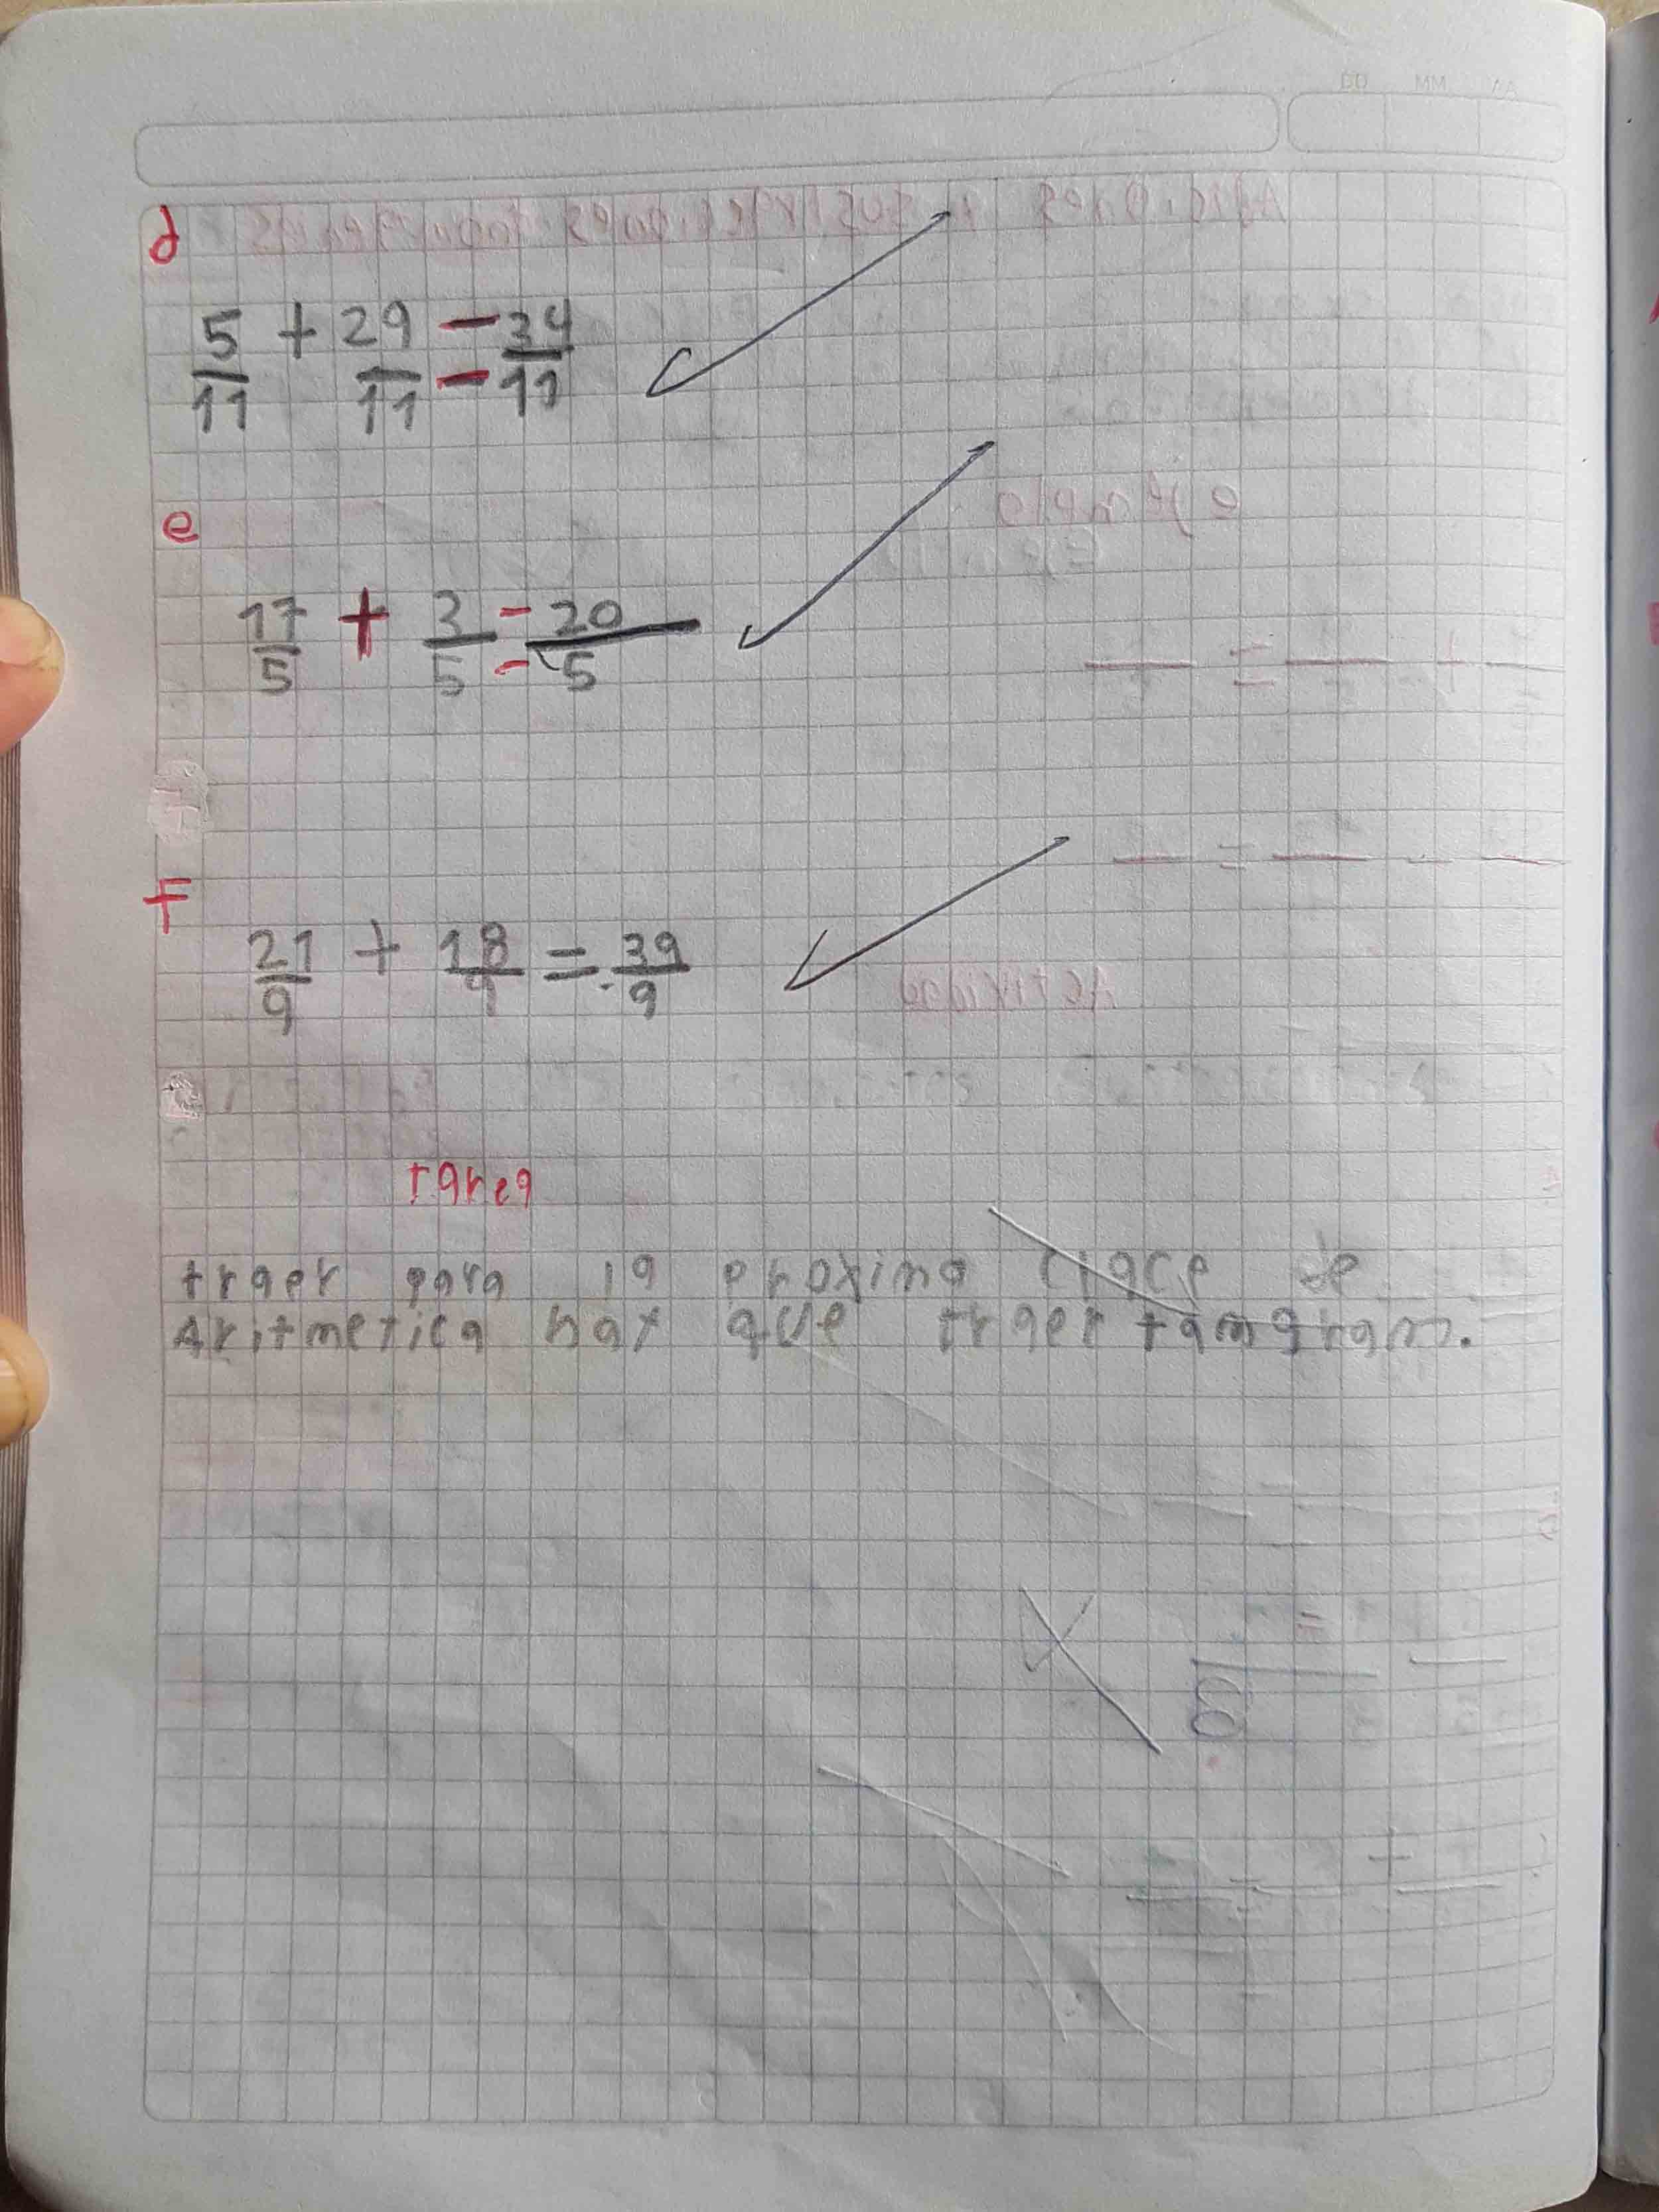 DD MM AA
d
5/11 + 29/11 = 34/11
e
17/5 + 3/5 = 20/5
F
21/9 + 18/9 = 39/9
tarea
traer para la proxima clace de
Aritmetica hay que traer tamgram.